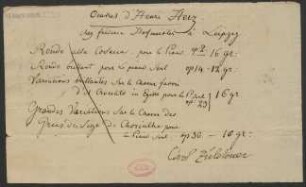 Oeuvres d'Henri Herz
chez Frédéric Hofmeister à Leipzig
Rondo alla Cosacca pour le Piano 16 gr.
Rondo brillant pour le piano seul op 14 - 12 gr.
Variations brillantes sur le Choeur favori
d'il Crociato in Egitto pour le P. seul op. 23 16 gr
Grandes Variations sur le Choeur des
Grecs du Siège de Corinthe pour
le Piano seul op 36 - 16 gr.
Carl